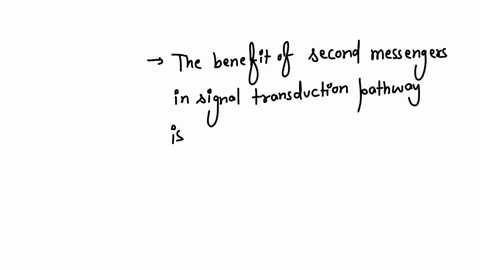 → The benefit of second messengers
in signal transduction pathway
is